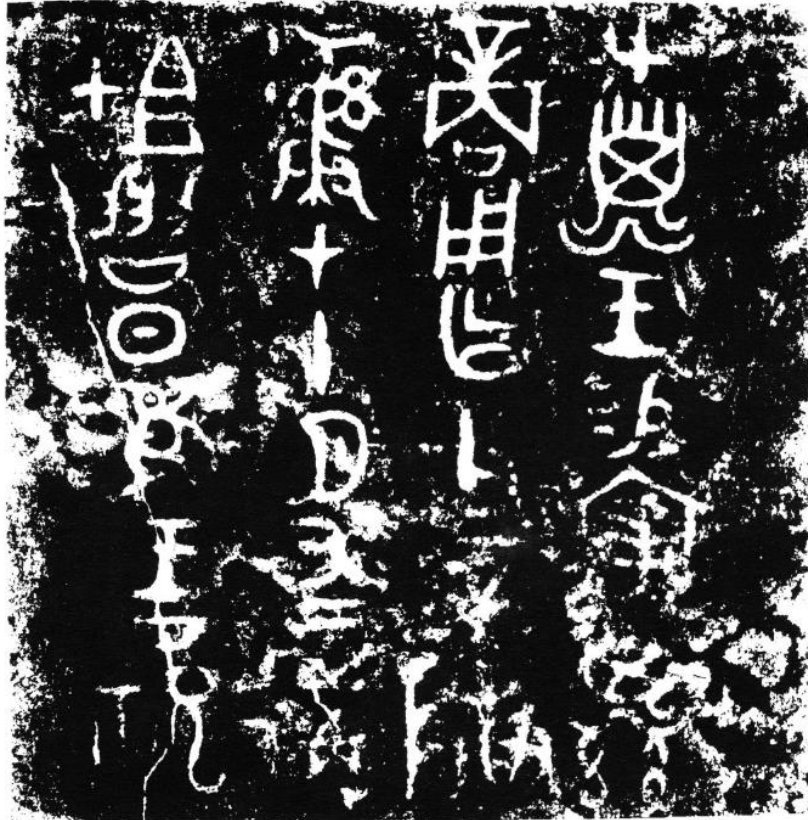 甲子王易寢孳
商用乍父辛尊
彝才十月又二遘
且甲劦日隹王廿祀